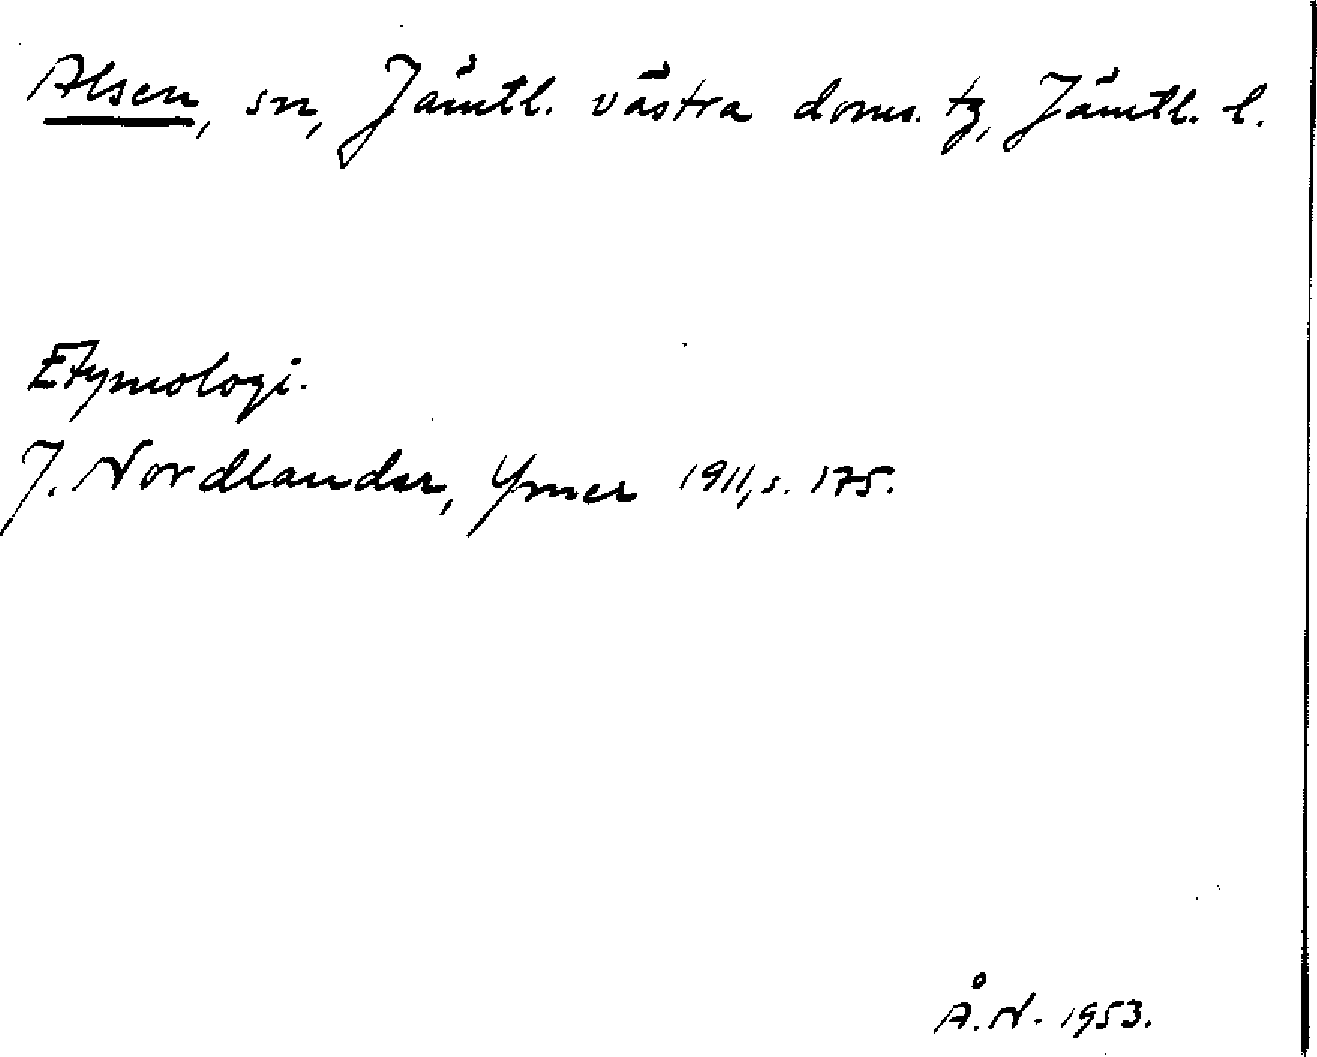 Alsen, sn, Jämtl. västra doms. tg, Jämtl. l.
Etymologi.
J. Nordlander, Ymer 1911, s. 175.
Å. N. 1953.